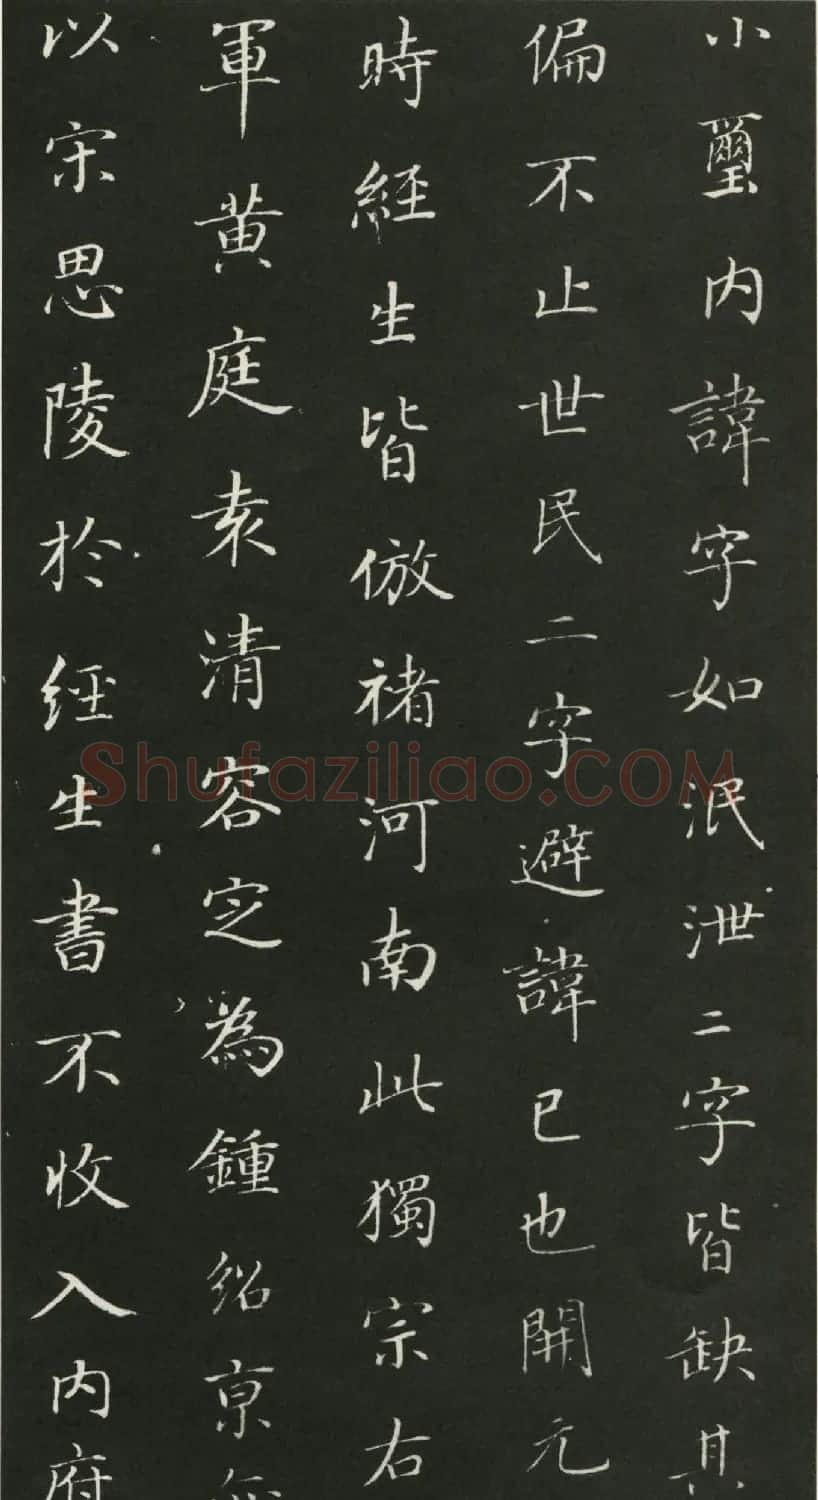 小璽内諱字如泯泄二字皆缺其
偏不止世民二字避諱已也開元
時經生皆倣褚河南此獨宗右
軍黄庭袁清容定為鍾紹京
以宋思陵於經生書不收入内府
Shufaziliao.COM